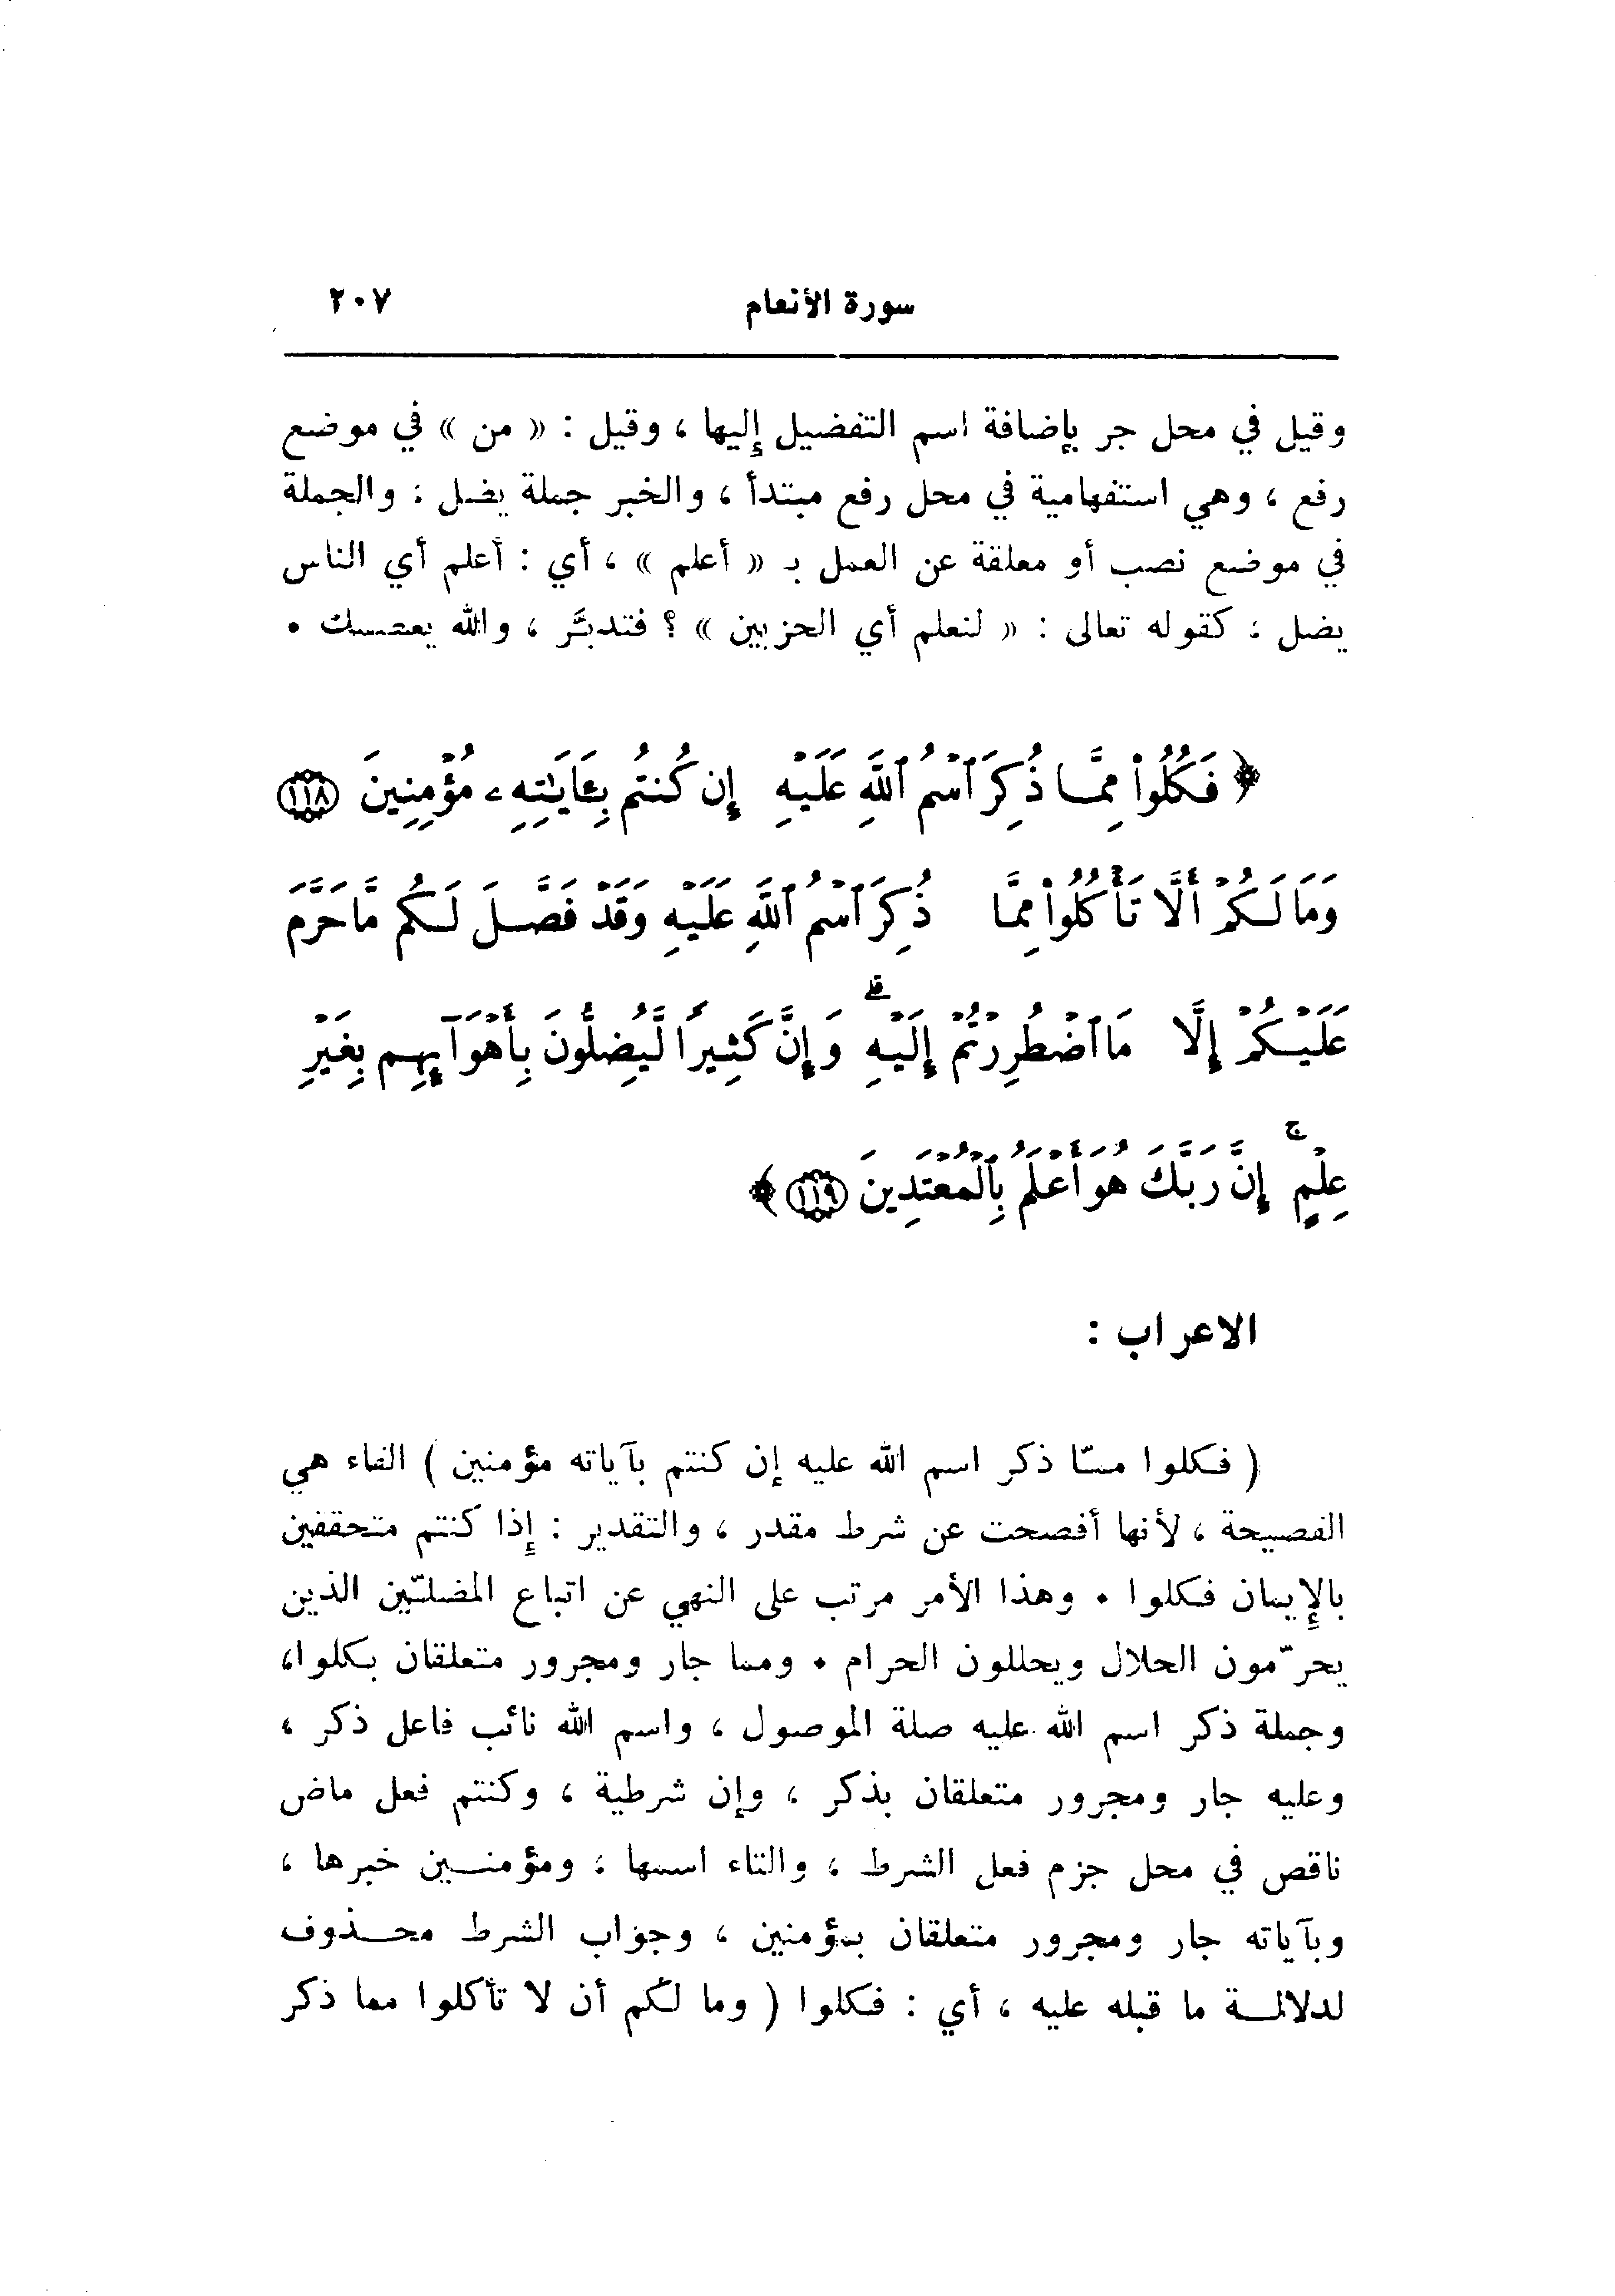 سورة الأنعام ٢٠٧
وقيل في محل جر بإضافة اسم التفضيل إليها ، وقيل : « من » في موضع
رفع ، وهي استفهامية في محل رفع مبتدأ ، والخبر جملة يضل ؛ والجملة
في موضع نصب أو معلقة عن العمل بـ « أعلم » ، أي : أعلم أي الناس
يضل ؛ كقوله تعالى : « لنعلم أي الحزبين » ؟ فتدبَّر ، والله يعصمك .
﴿ فَكُلُوا۟ مِمَّا ذُكِرَ ٱسْمُ ٱللَّهِ عَلَيْهِ إِن كُنتُم بِـَٔايَـٰتِهِۦ مُؤْمِنِينَ ١١٨
وَمَا لَكُمْ أَلَّا تَأْكُلُوا۟ مِمَّا ذُكِرَ ٱسْمُ ٱللَّهِ عَلَيْهِ وَقَدْ فَصَّلَ لَكُم مَّا حَرَّمَ
عَلَيْكُمْ إِلَّا مَا ٱضْطُرِرْتُمْ إِلَيْهِ ۗ وَإِنَّ كَثِيرًا لَّيُضِلُّونَ بِأَهْوَآئِهِم بِغَيْرِ
عِلْمٍ ۚ إِنَّ رَبَّكَ هُوَ أَعْلَمُ بِٱلْمُعْتَدِينَ ١١٩ ﴾
الاعراب :
( فكلوا ممّا ذكر اسم الله عليه إن كنتم بآياته مؤمنين ) الفاء هي
الفصيحة ، لأنها أفصحت عن شرط مقدر ، والتقدير : إذا كنتم متحققين
بالإيمان فكلوا . وهذا الأمر مرتب على النهي عن اتباع المضلّين الذين
يحرّمون الحلال ويحللون الحرام . ومما جار ومجرور متعلقان بكلوا،
وجملة ذكر اسم الله عليه صلة الموصول ، واسم الله نائب فاعل ذكر ،
وعليه جار ومجرور متعلقان بذكر ، وإن شرطية ، وكنتم فعل ماض
ناقص في محل جزم فعل الشرط ، والتاء اسمها ؛ ومؤمنين خبرها ،
وبآياته جار ومجرور متعلقان بمؤمنين ، وجواب الشرط محذوف
لدلالة ما قبله عليه ، أي : فكلوا ( وما لكم أن لا تأكلوا مما ذكر